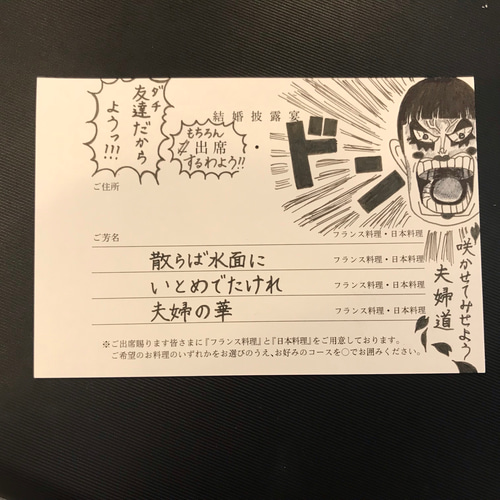 友達(ダチ)だから
ようっ!!!
結婚披露宴
もちろん
出席
するわよう!!
・
ドン
ご住所
ご芳名
フランス料理・日本料理
散らば水面に
フランス料理・日本料理
いとめでたけれ
フランス料理・日本料理
夫婦の華
フランス料理・日本料理
咲かせてみせよう
夫婦道
※ご出席賜ります皆さまに『フランス料理』と『日本料理』をご用意しております。
ご希望のお料理のいずれかをお選びのうえ、お好みのコースを〇でお囲みください。